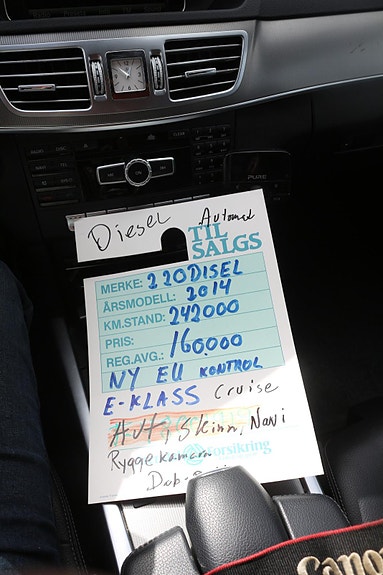 PURE
Diesel Automat
TIL
SALGS
MERKE: 220DISEL
ÅRSMODELL: 2014
KM.STAND: 242000
PRIS:
REG.AVG.: 160.000
NY EU KONTROL
E-KLASS Cruise
Skinn, Navi
Ryggekamara
forsikring
Canon